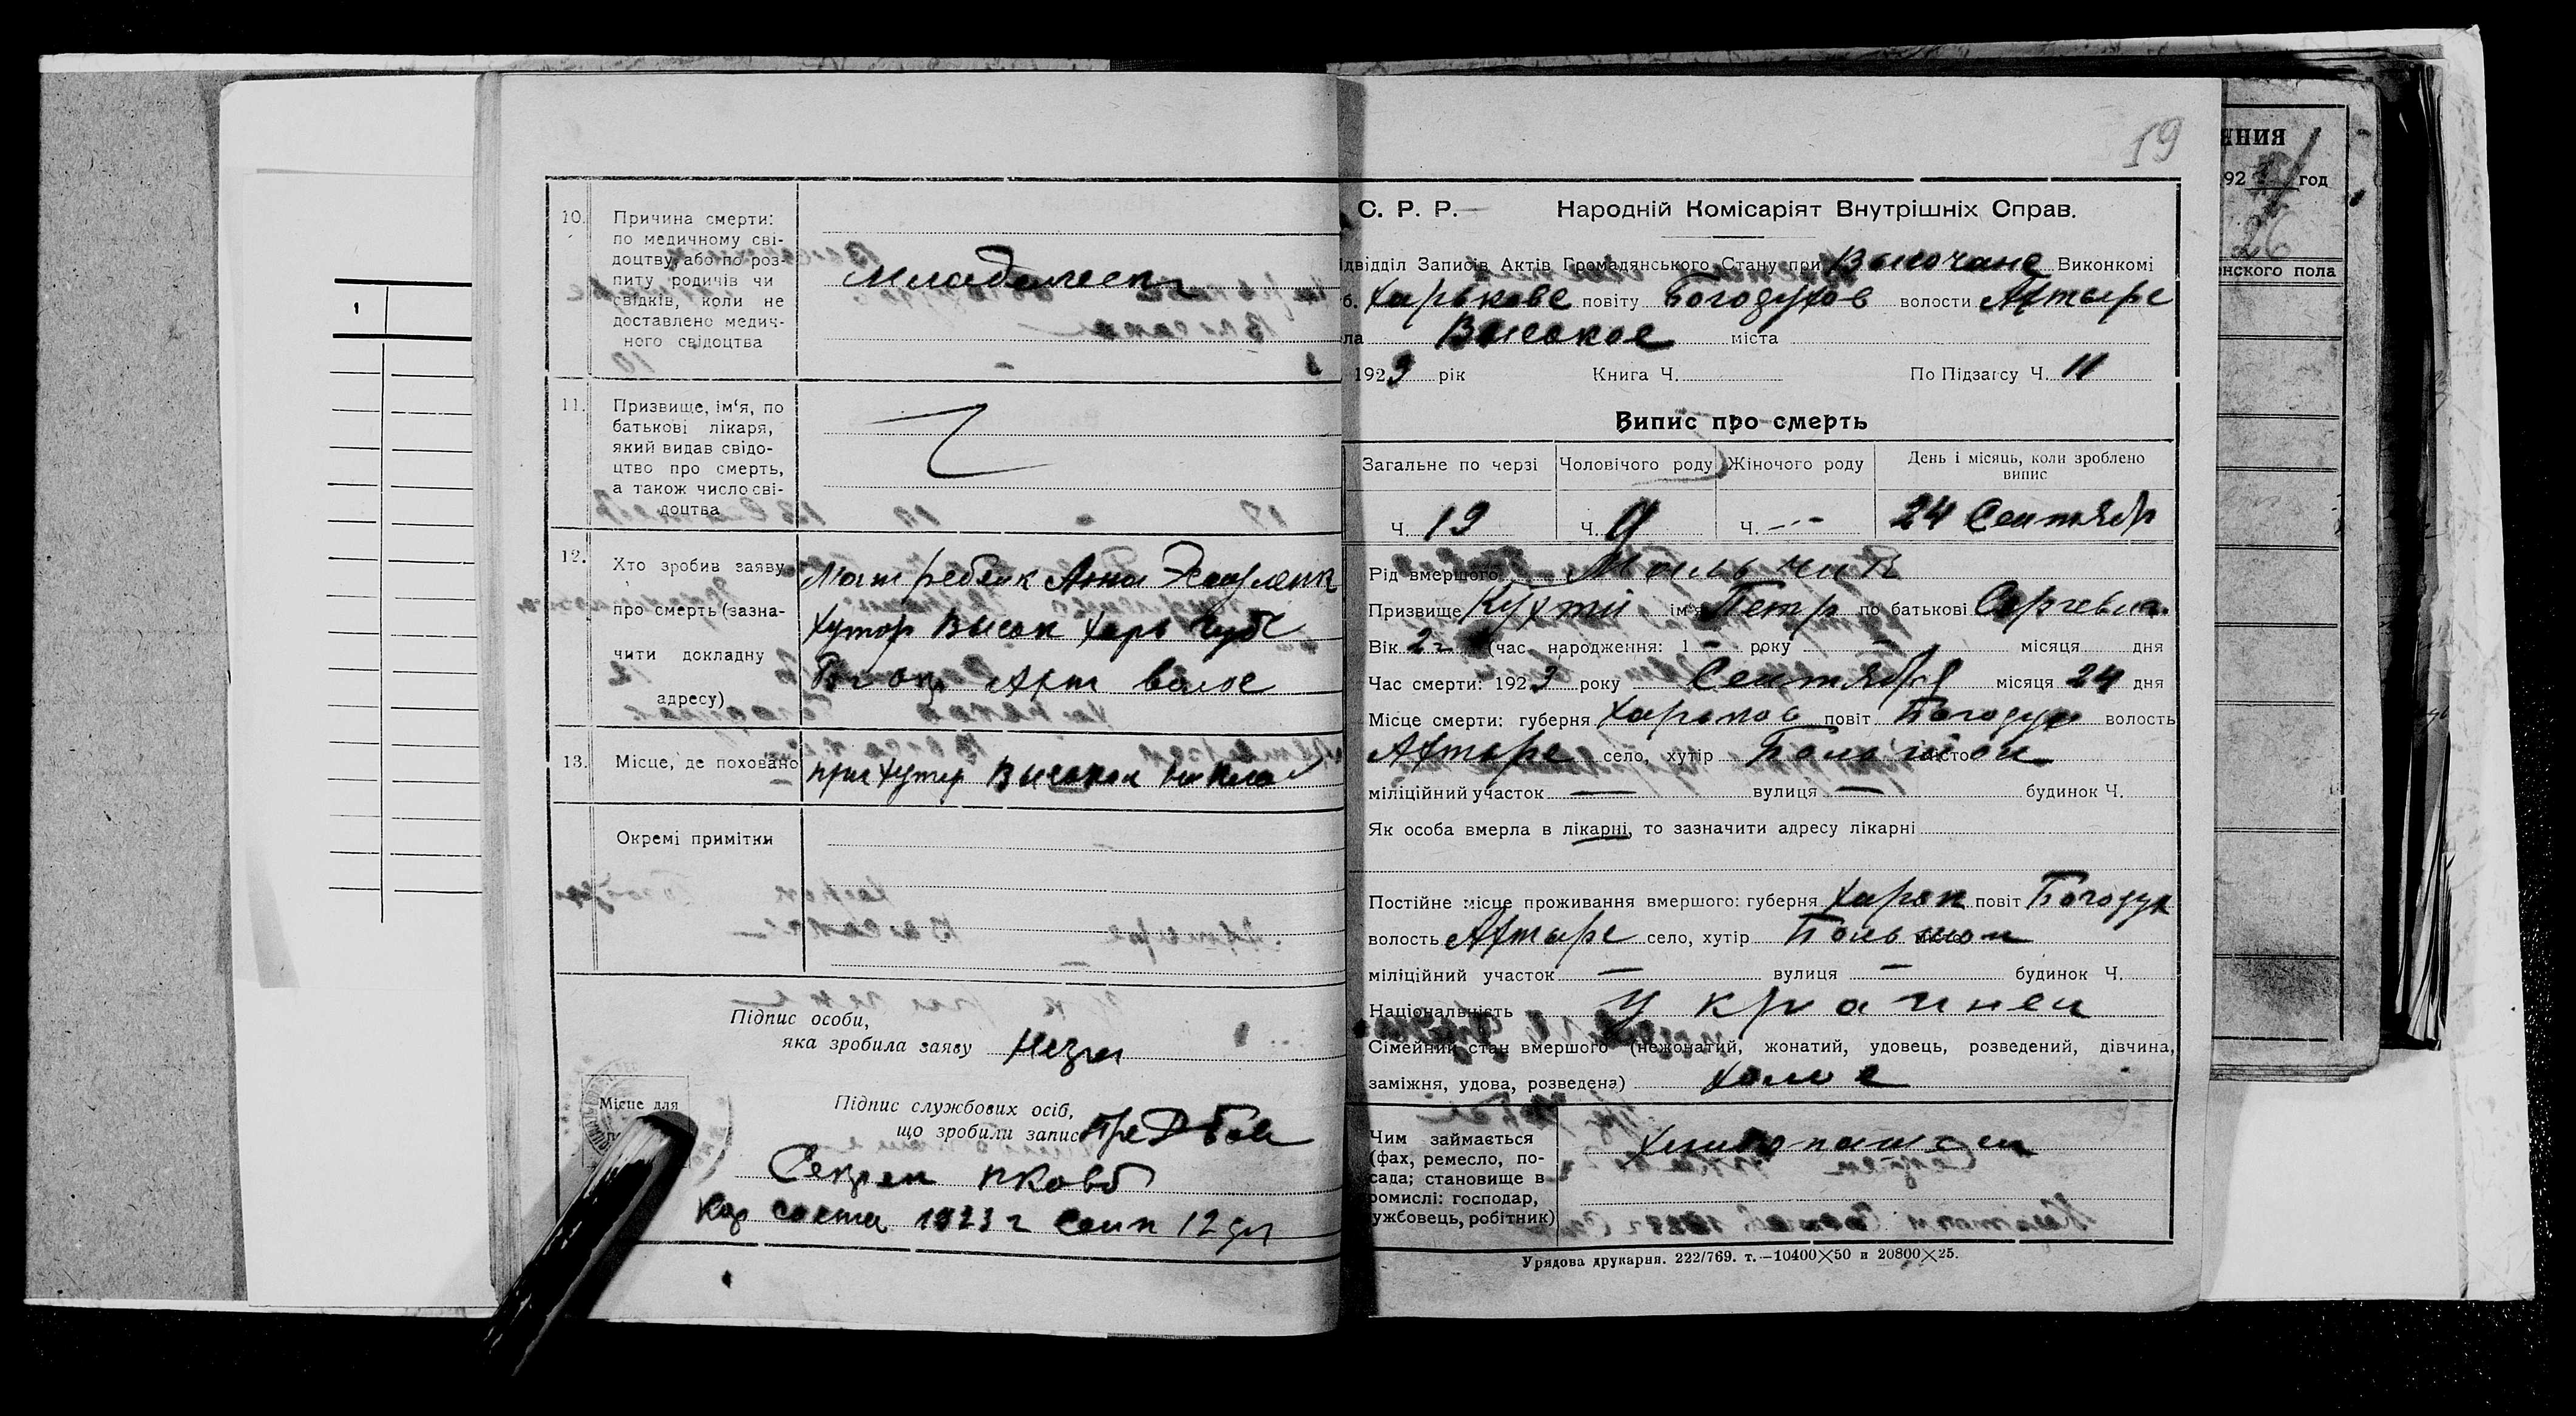 10. Причина смерти:
по медичному сві-
доцтву, або по роз-
питу родичів чи
свідків, коли не
доставлено медич-
ного свідоцтва
11. Призвище, ім'я, по
батькові лікаря,
який видав свідо-
цтво про смерть,
а також число сві-
доцтва
12. Хто зробив заяву
про смерть (зазна-
чити докладну
адресу)
Анна
хутор Висок Харь губе
13. Місце, де поховано
при хутор
Окремі примітки
Підпис особи,
яка зробила заяву
Місце для
Підпис службових осіб,
що зробили запис
1923 г Сент 12 дн
19
С. Р. Р. Народній Комісаріят Внутрішніх Справ.
ідвідділ Записів Актів Громадянського Стану при Височане Виконкомі
б. Харькове повіту Богодухов волости Ахтыре
ла Високое міста
1923 рік Книга Ч. По Підзагсу Ч. 11
Випис про смерть
Загальне по черзі Чоловічого роду Жіночого роду День і місяць, коли зроблено
випис
Ч. 19 Ч. 9 Ч. — 24 Сентябр
Рід вмершого Мальчик
Призвище Кухтій ім'я Петр по батькові Сергевич
Вік 2 г (час народження: 1 – року місяця дня
Час смерти: 1923 року Сентября місяця 24 дня
Місце смерти: губерня Харьков повіт Богодух волость
Ахтыре село, хутір місто
міліційний участок — вулиця — будинок Ч.
Як особа вмерла в лікарні, то зазначити адресу лікарні
Постійне місце проживання вмершого: губерня Харьк повіт Богодух
волость Ахтыре село, хутір місто
міліційний участок — вулиця — будинок Ч.
Національність Украинец
Сімейний стан вмершого (нежонатий, жонатий, удовець, розведений, дівчина,
заміжня, удова, розведена) Холое
Чим займається
(фах, ремесло, по-
сада; становище в
ромислі: господар,
ужбовець, робітник)
Урядова друкарня. 222/769. т.—10400×50 и 20800×25.
ЯНИЯ
92 год
26
нского пола
1